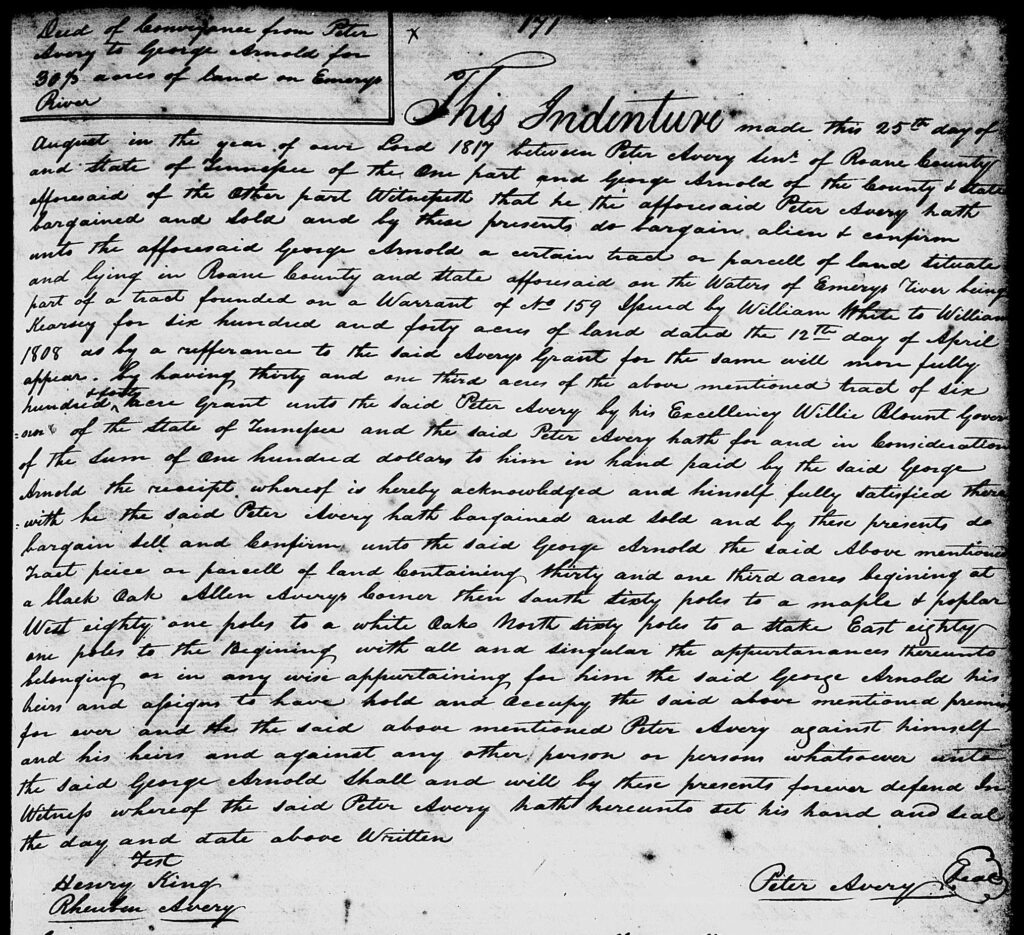 171
Deed of Conveyance from Peter
Avery to George Arnold for
30⅓ acres of land on Emerys
River
x
This Indenture made this 25th day of
August in the year of our Lord 1817 between Peter Avery Senr. of Roane County
and State of Tennessee of the One part and George Arnold of the County & State
afforesaid of the Other part Witnesseth that he the afforesaid Peter Avery hath
bargained and Sold and by these presents do bargain alien & confirm
unto the afforesaid George Arnold a certain tract or parcell of land situate
and lying in Roane County and State afforesaid on the Waters of Emerys River being
part of a tract founded on a Warrant of No 159 Issued by William White to William
Kearsey for six hundred and forty acres of land dated the 12th day of April
1808 as by a refferance to the said Averys Grant for the same will more fully
appear. by having thirty and one third acres of the above mentioned tract of six
hundred & forty acre Grant unto the said Peter Avery by his Excellency Willie Blount Gover
=nor of the State of Tennessee and the said Peter Avery hath for and in Consideration
of the Sum of One hundred dollars to him in hand paid by the said George
Arnold the receipt whereof is hereby acknowledged and himself fully satisfied there
=with he the said Peter Avery hath bargained and Sold and by these presents do
bargain Sell and Confirm unto the said George Arnold the said Above mentioned
Tract peice or parcell of land Containing thirty and one third acres begining at
a black Oak Allen Averys Corner then South sixty poles to a maple & poplar
West eighty one poles to a white Oak North sixty poles to a Stake East eighty
one poles to the Begining with all and singular the appurtanances thereunto
belonging or in any wise appurtaining for him the said George Arnold his
heirs and assigns to have hold and Occupy the said above mentioned premis
for ever and He the said above mentioned Peter Avery against himself
and his heirs and against any other person or persons whatsoever unto
the said George Arnold Shall and will by these presents forever defend In
Witness whereof the said Peter Avery hath hereunto set his hand and seal
the day and date above Written
Test
Henry King
Rheuben Avery
Peter Avery Seal